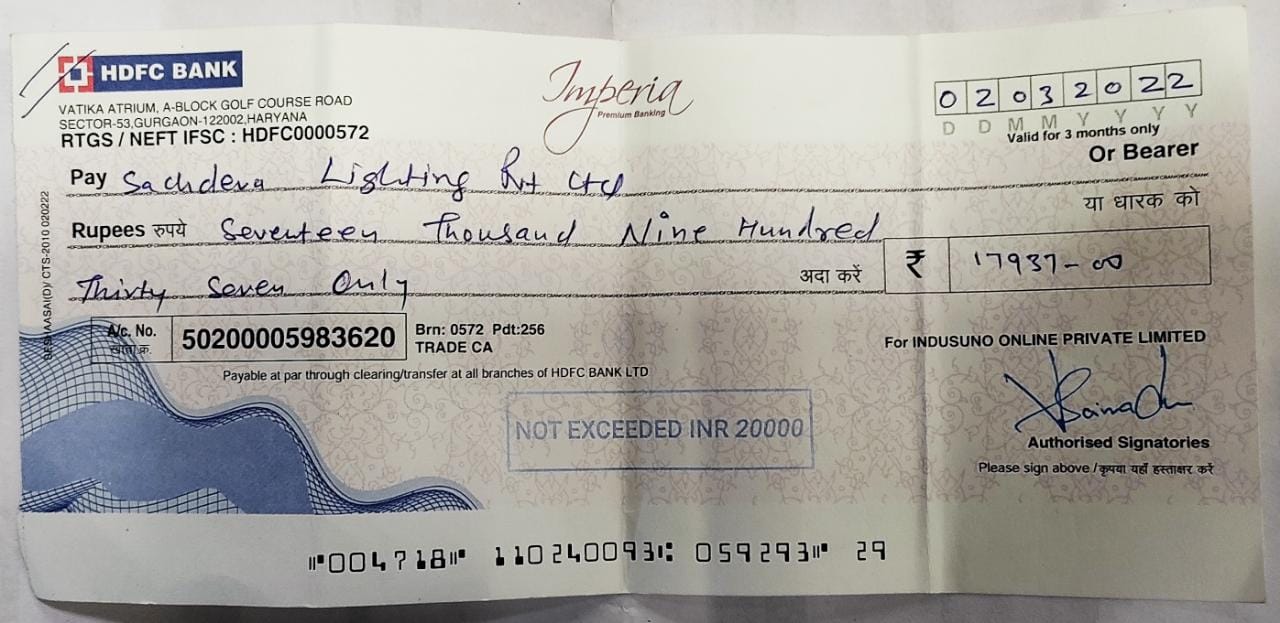 HDFC BANK
VATIKA ATRIUM, A-BLOCK GOLF COURSE ROAD
SECTOR-53,GURGAON-122002,HARYANA
RTGS / NEFT IFSC : HDFC0000572
Imperia
Premium Banking
0 2 0 3 2 0 2 2
D D M M Y Y Y Y
Valid for 3 months only
Or Bearer
Pay Sachdeva Lighting Pvt Ltd
या धारक को
Rupees रुपये Seventeen Thousand Nine Hundred
Thirty Seven Only अदा करें ₹ 17937-00
A/c. No.
खाता क्र.
50200005983620
Brn: 0572 Pdt:256
TRADE CA
Payable at par through clearing/transfer at all branches of HDFC BANK LTD
For INDUSUNO ONLINE PRIVATE LIMITED
NOT EXCEEDED INR 20000
Authorised Signatories
Please sign above / कृपया यहाँ हस्ताक्षर करें
CTS-2010 020222
⑈004718⑈ 110240093⑆ 059293⑈ 29